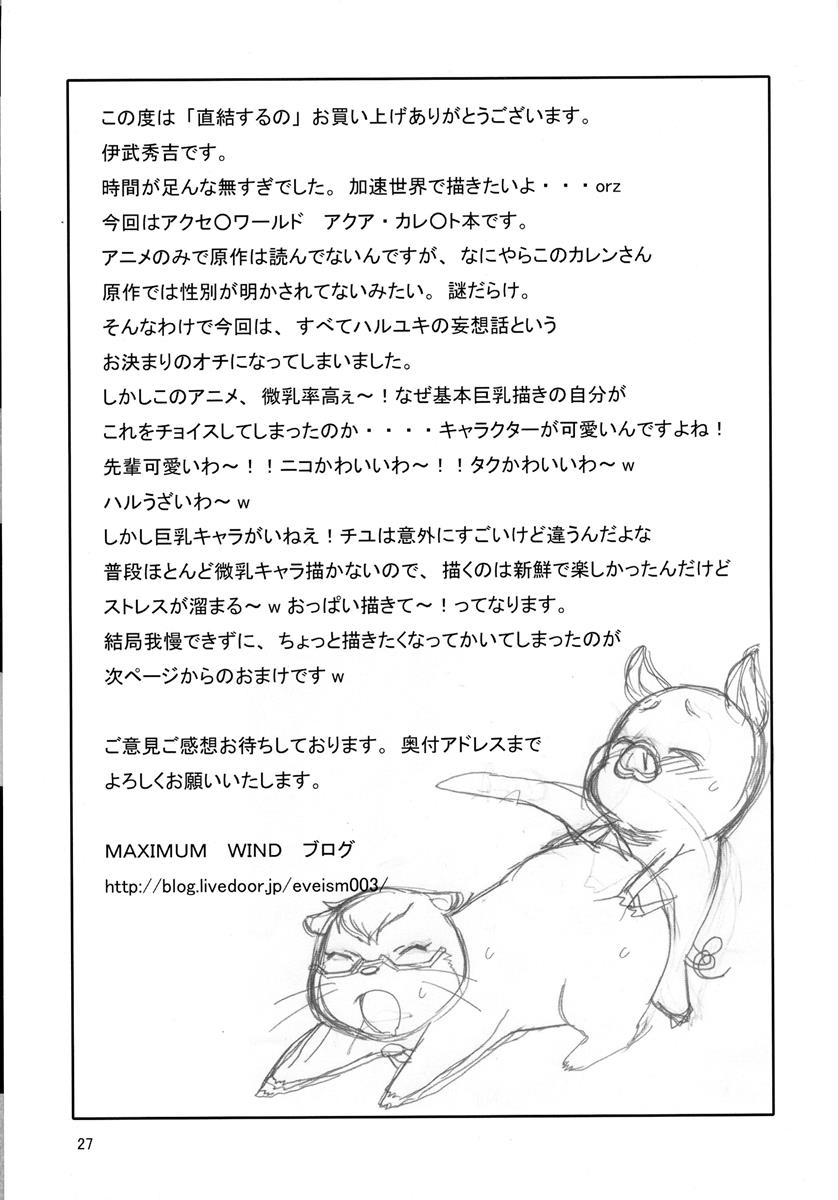 この度は「直結するの」お買い上げありがとうございます。
伊武秀吉です。
時間が足んな無すぎでした。加速世界で描きたいよ・・・orz
今回はアクセ〇ワールド　アクア・カレ〇ト本です。
アニメのみで原作は読んでないんですが、なにやらこのカレンさん
原作では性別が明かされてないみたい。謎だらけ。
そんなわけで今回は、すべてハルユキの妄想話という
お決まりのオチになってしまいました。
しかしこのアニメ、微乳率高ぇ～！なぜ基本巨乳描きの自分が
これをチョイスしてしまったのか・・・・キャラクターが可愛いんですよね！
先輩可愛いわ～！！ニコかわいいわ～！！タクかわいいわ～w
ハルうざいわ～w
しかし巨乳キャラがいねえ！チユは意外にすごいけど違うんだよな
普段ほとんど微乳キャラ描かないので、描くのは新鮮で楽しかったんだけど
ストレスが溜まる～w おっぱい描きて～！ってなります。
結局我慢できずに、ちょっと描きたくなってかいてしまったのが
次ページからのおまけですw
ご意見ご感想お待ちしております。奥付アドレスまで
よろしくお願いいたします。
MAXIMUM　WIND　ブログ
http://blog.livedoor.jp/eveism003/
27